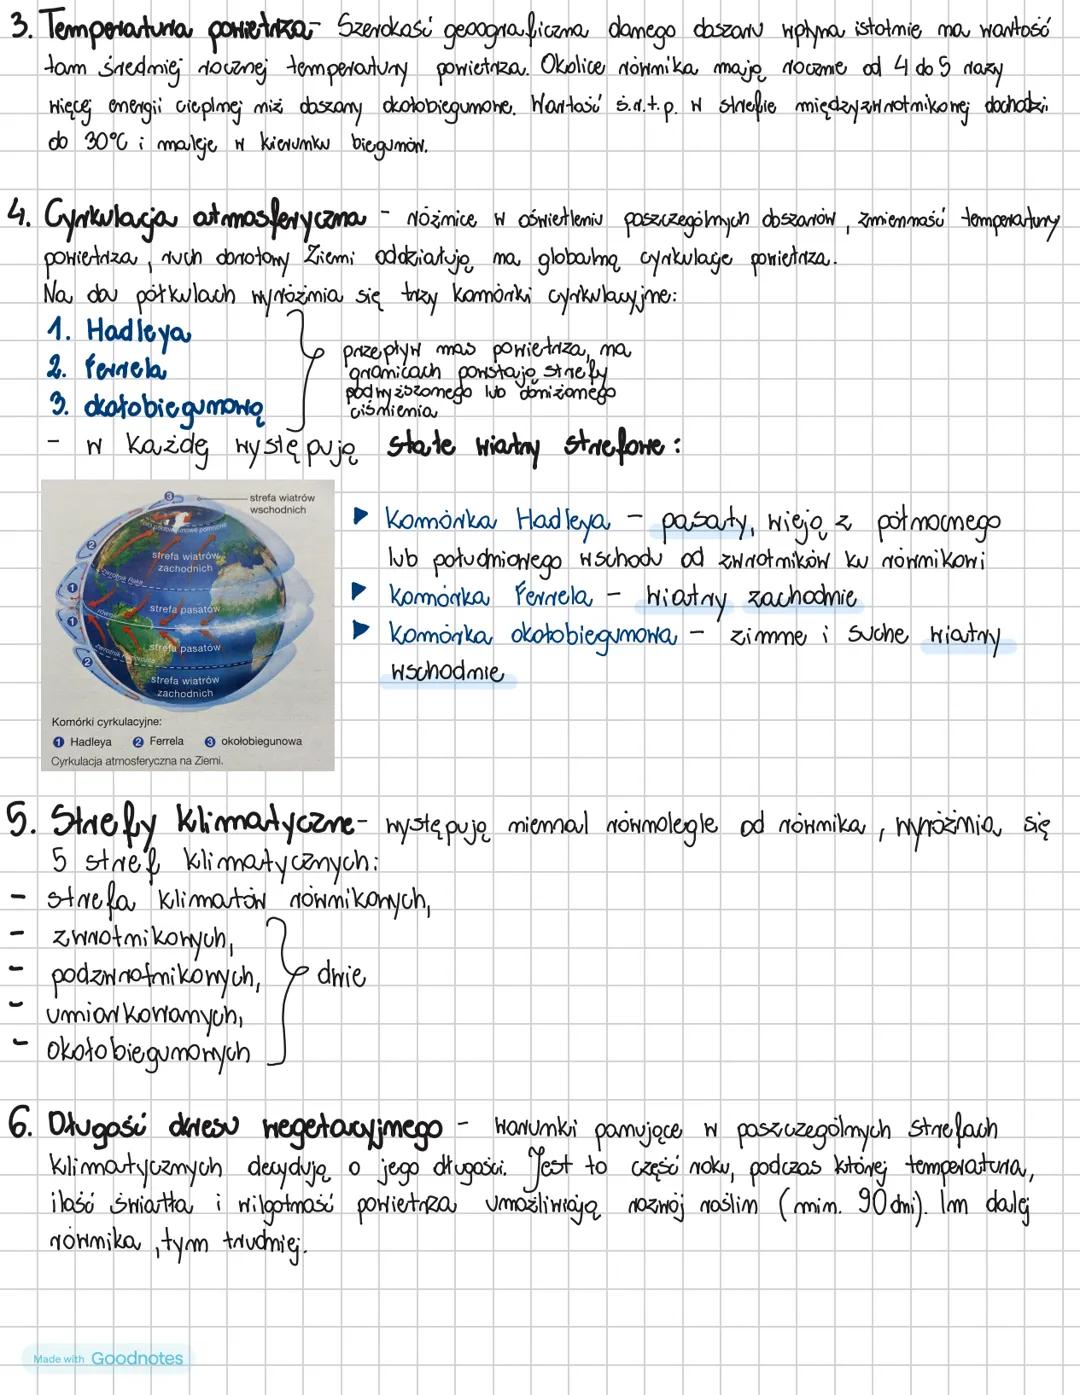 3. Temperatura powietrza - Szerokość geograficzna danego obszaru wpływa istotnie na wartość
tam średniej rocznej temperatury powietrza. Okolice równika mają rocznie od 4 do 5 razy
więcej energii cieplnej niż obszary okołobiegunowe. Wartość ś.r.t.p. w strefie międzyzwrotnikowej dochodzi
do 30°C i maleje w kierunku biegunów.
4. Cyrkulacja atmosferyczna - różnice w oświetleniu poszczególnych obszarów, zmienność temperatury
powietrza, ruch obrotowy Ziemi oddziałują na globalną cyrkulacje powietrza.
Na obu półkulach wyróżnia się trzy komórki cyrkulacyjne:
1. Hadleya
2. Ferrela
3. okołobiegunową
przepływ mas powietrza, na
granicach powstają strefy
podwyższonego lub obniżonego
ciśnienia
- w każdej występują stałe wiatry strefowe:
3
strefa wiatrów
wschodnich
2
strefa wiatrów
zachodnich
zwrotnik Raka
1
strefa pasatów
równik
1
strefa pasatów
zwrotnik Koziorożca
2
strefa wiatrów
zachodnich
Komórki cyrkulacyjne:
1 Hadleya 2 Ferrela 3 okołobiegunowa
Cyrkulacja atmosferyczna na Ziemi.
▶ Komórka Hadleya - pasaty, wieją z północnego
lub południowego wschodu od zwrotników ku równikowi
▶ Komórka Ferrela - wiatry zachodnie
▶ Komórka okołobiegunowa - zimne i suche wiatry
wschodnie
5. Strefy klimatyczne - występują niemal równolegle od równika, wyróżnia się
5 stref klimatycznych:
- strefa klimatów równikowych,
- zwrotnikowych,
- podzwrotnikowych,
- umiarkowanych,
- okołobiegunowych
dwie
6. Długość okresu wegetacyjnego - warunki panujące w poszczególnych strefach
klimatycznych decydują o jego długości. Jest to część roku, podczas której temperatura,
ilość światła i wilgotność powietrza umożliwiają rozwój roślin (min. 90 dni). Im dalej
równika, tym trudniej.
Made with Goodnotes